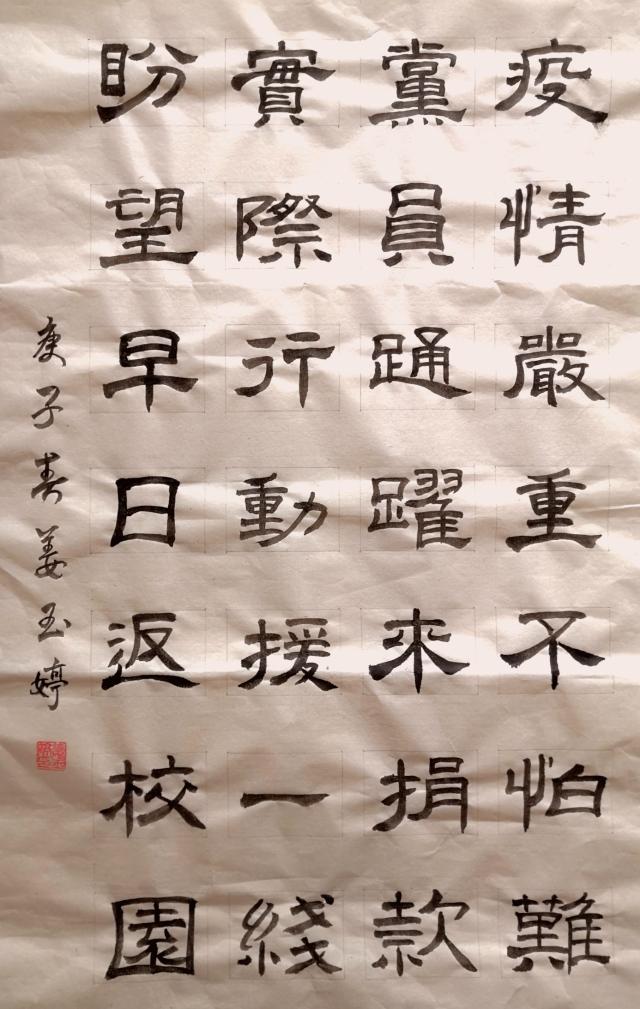 疫情嚴重不怕難
黨員踊躍來捐款
實際行動援一綫
盼望早日返校園
庚子春姜玉婷